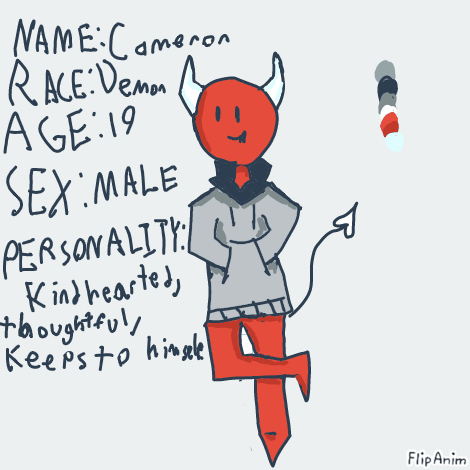 NAME:Cameron
RACE:Demon
AGE:19
SEX:MALE
PERSONALITY:
Kindhearted,
thoughtful,
Keeps to himself
FlipAnim